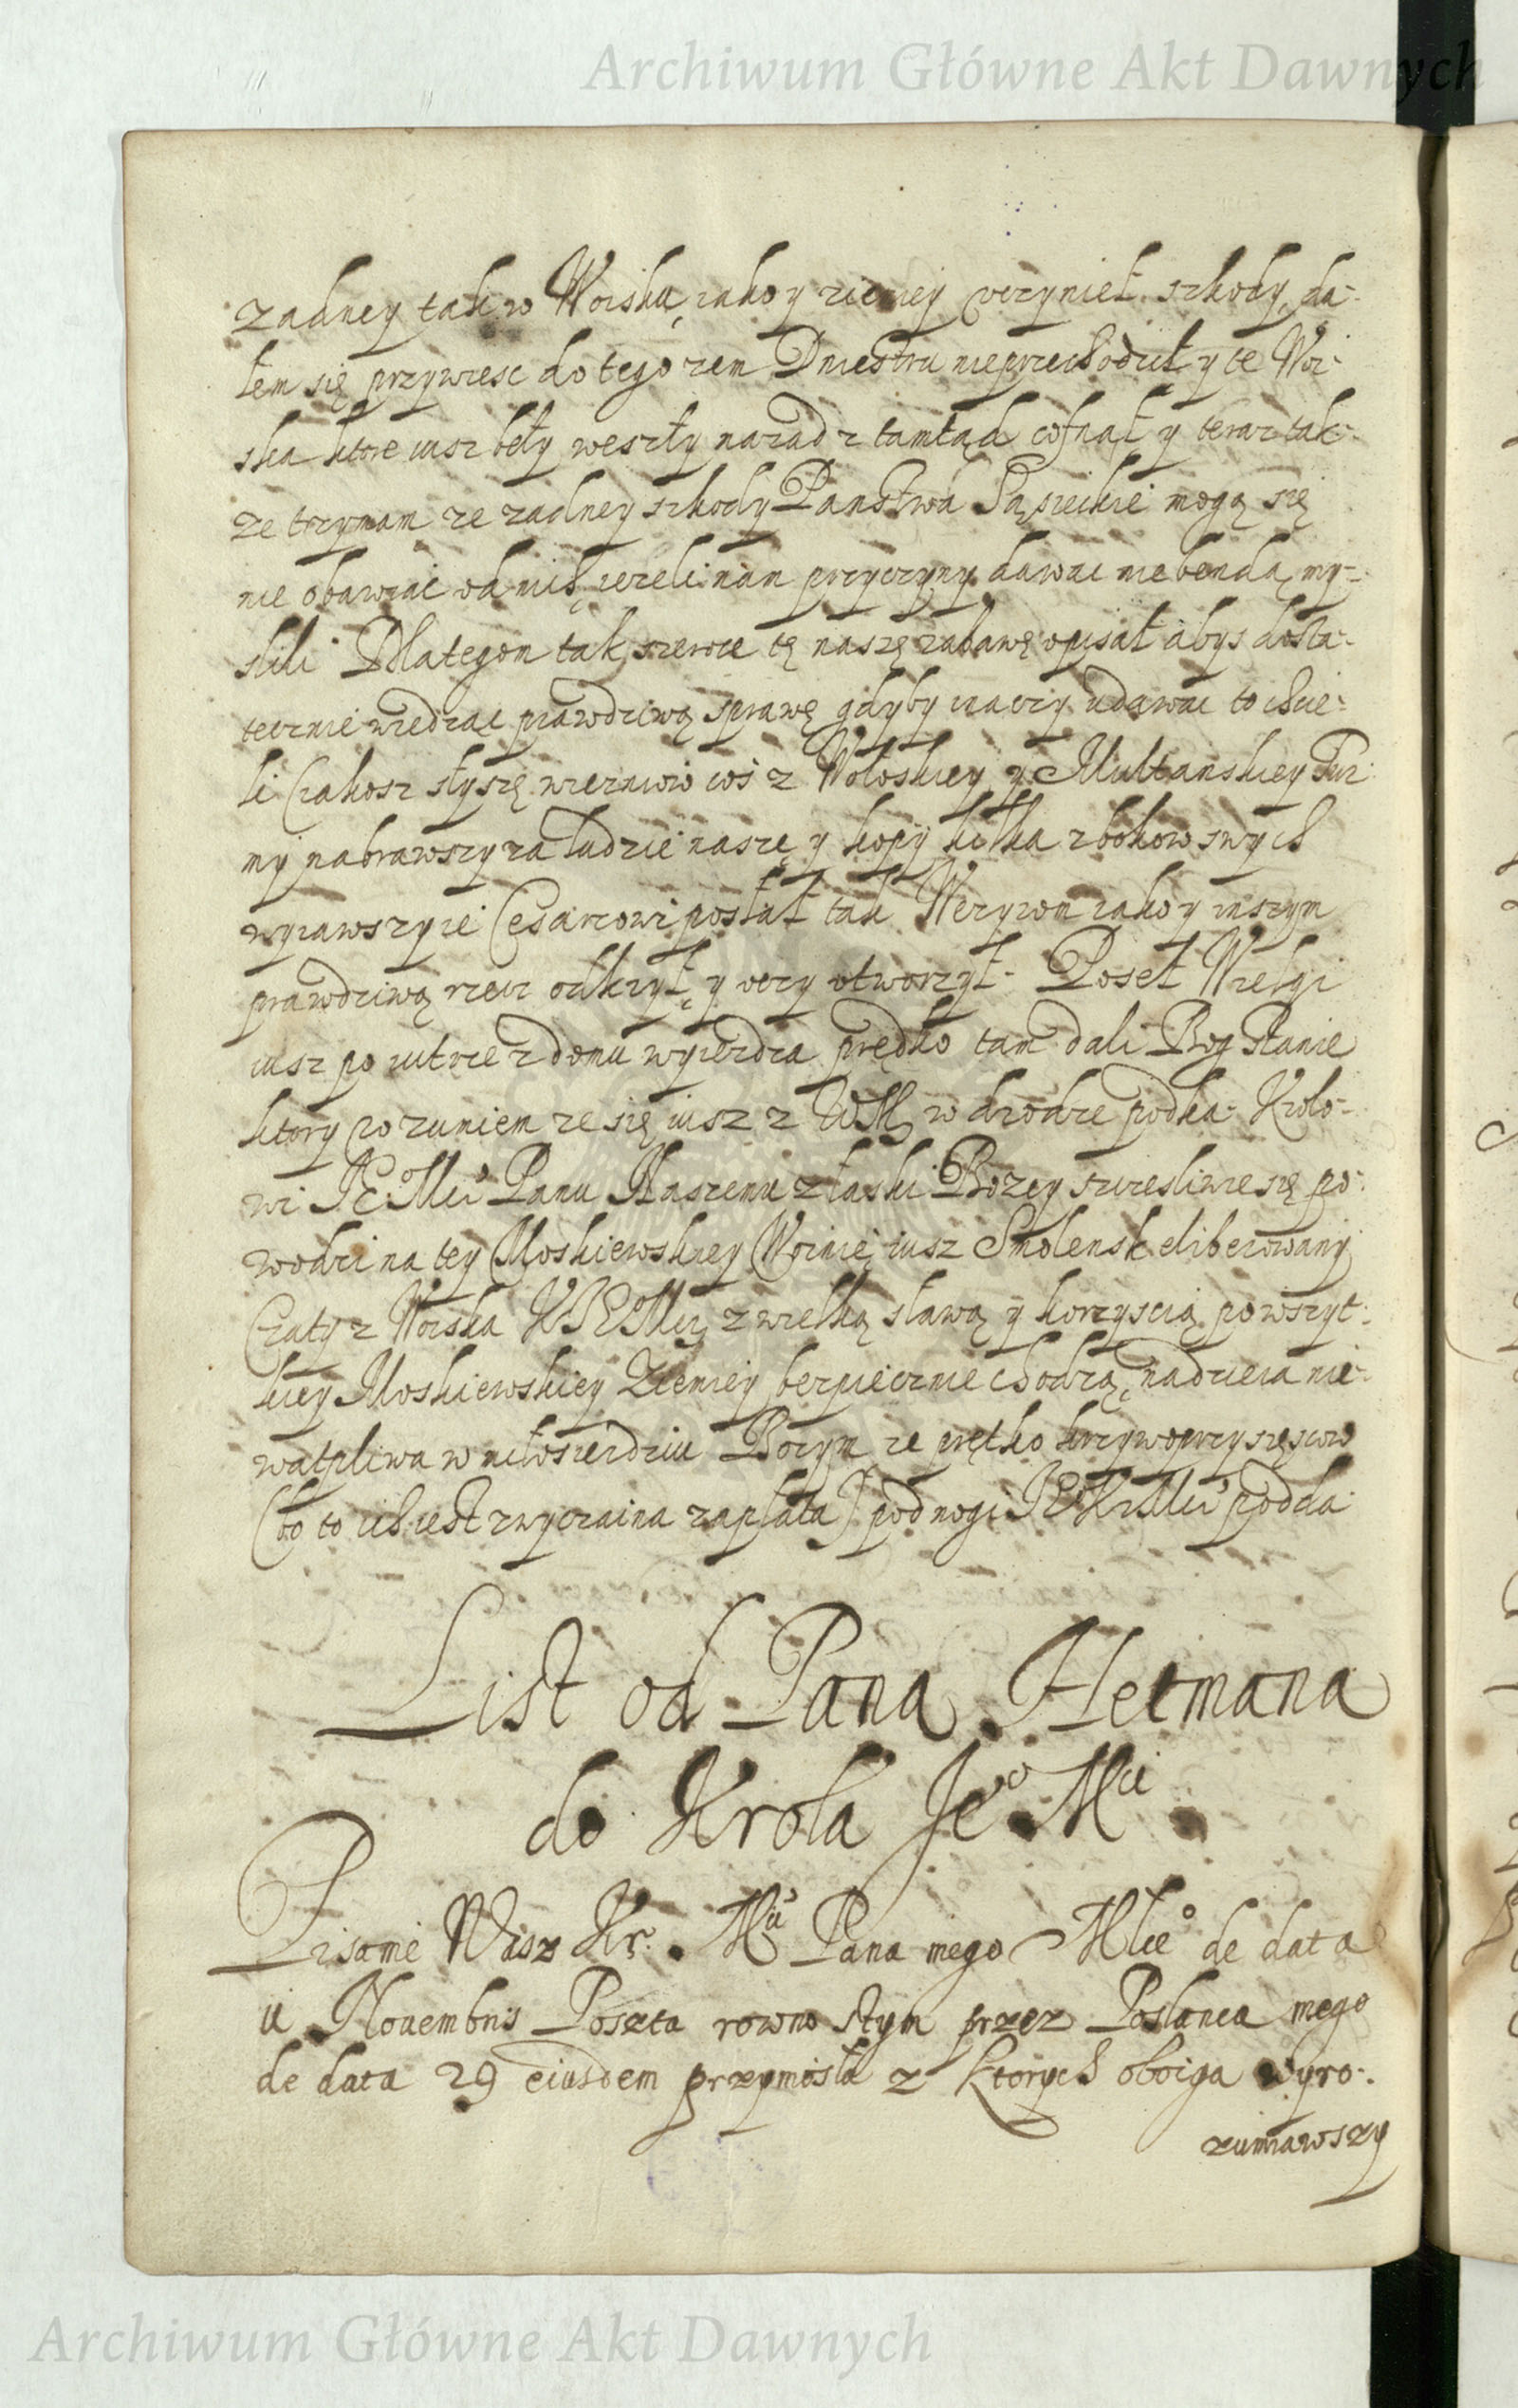 Archiwum Główne Akt Dawnych
zadney tak w Woisku, iako y ziemiey uczynieł szkody, da-
łem się przywiesc do tego zem Dniestru nieprzechodził y te Woi-
ska ktore iusz beły weszły nazad z tamtąd cofnął y teraz tak-
ze trzymam ze zadney szkody Panstwa Sąsieckie mogą się
nie obawiac od nich, iezeli nam przyczyny dawac niebendą my-
slili. Dlategom tak szeroce tę naszę zabawę opisał abys dosta-
tecznie wiedział prawdziwą sprawę gdyby inaczy udawac to chcie-
li (iakosz słyszę wiezniow cos z Wołoskiey y Multanskiey Tur-
my nabrawszy za ludzie nasze y kopy kilka z bokow swych
wyiawszy ie Cesarzowi posłał tak Wezyrom iako y inszym
prawdziwą rzecz odkrył, y oczy otworzył. Poseł Wielgi
iusz po iutrze z domu wyiezdza prędko tam dali Bog stanie
ktory rozumiem ze się iusz z WM w drodze podka. Krolo-
wi JE Mci Panu Naszemu z łaski Bozey szczesliwie się po-
wodzi na tey Moskiewskiey Woinie, iusz Smolensk eliberowany
Czaty z Woiska KJEMci z wielką sławą y korzyscią po wszyt-
kiey Moskiewskiey Ziemiey bezpiecznie chodzą, nadzieia nie-
watpliwa w miłosierdziu Bozym ze prętko krzywoprzysięscow
(bo to ich iest zwyczaina zapłata) pod nogi JEKrMci podda
List od Pana Hetmana
do Krola Jeo Mci
Pisanie Wasz Kr. Mci Pana mego Młeo de data
11 Nouembris Poszta rowno stym przez Posłanca mego
de data 29 eiusdem przymiosła z ktorych oboiga wyro-
zumiawszy
Archiwum Główne Akt Dawnych